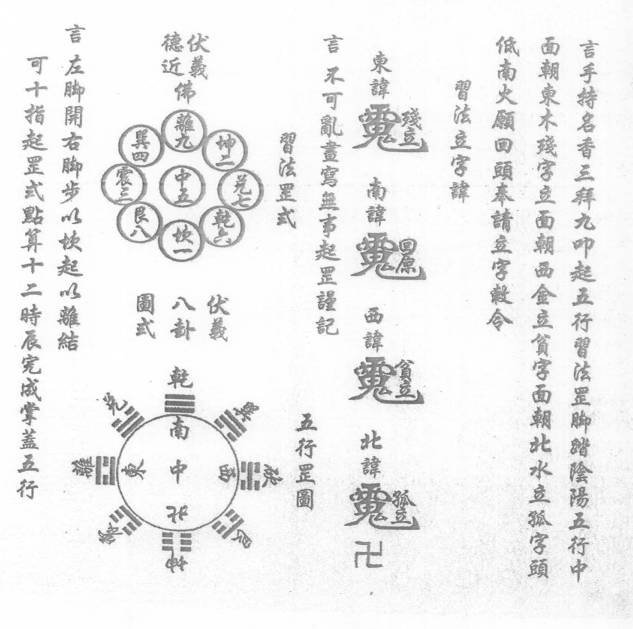 言手持名香三拜九叩起五行習法罡脚踏陰陽五行中
面朝東木殘字立面朝西金立貧字面朝北水立孤字頭
低南火願回頭奉請立字敕令
習法立字諱
東諱
殘立
南諱
回原
西諱
貧立
北諱
孤立
卍
言不可亂畫寫無事起罡謹記
習法罡式
五行罡圖
伏羲
德近
佛
離九
坤二
兌七
乾六
坎一
艮八
震三
巽四
中五
伏羲
八卦
圖式
乾
巽
坎
艮
坤
震
離
兌
南
西
北
東
中
言左脚開右脚步以坎起以離結
可十指起罡式點算十二時辰完成掌蓋五行